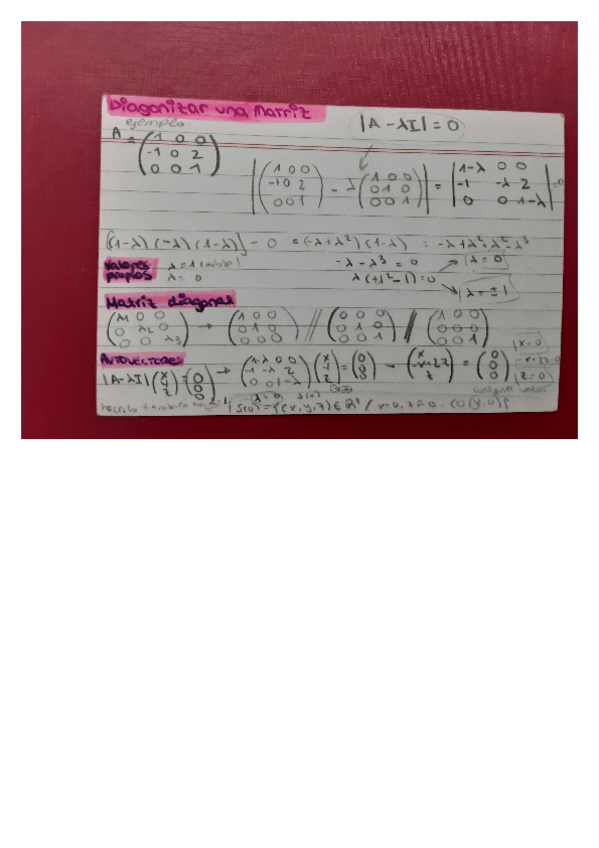 Diagonizar una Matriz
ejemplo. |A - λI| = 0
A = (1 0 0 / -1 0 2 / 0 0 1)
|(1 0 0 / -1 0 2 / 0 0 1) - λ(1 0 0 / 0 1 0 / 0 0 1)| = |1-λ 0 0 / -1 -λ 2 / 0 0 1-λ| = 0
[(1-λ)(-λ)(1-λ)] - 0 = (-λ+λ²)(1-λ) = -λ+λ²+λ²-λ³
Valores propios λ = 1 λ = 0
-λ - λ³ = 0 λ = 0
λ(+λ²-1) = 0 λ = ±1
Matriz diagonal
(λ1 0 0 / 0 λ2 0 / 0 0 λ3) → (1 0 0 / 0 1 0 / 0 0 0) // (0 0 0 / 0 1 0 / 0 0 1) // (1 0 0 / 0 0 0 / 0 0 1)
Autovectores
|A-λI| (x / y / z) = (0 / 0 / 0) → (1-λ 0 0 / -1 -λ 2 / 0 0 1-λ) (x / y / z) = (0 / 0 / 0) → (x / -x+2z / z) = (0 / 0 / 0) x=0 -x+2z=0 z=0
λ=0 S(0)
S(0) = {(x,y,z) ∈ R³ / x=0, z=0. (0,y,0)}